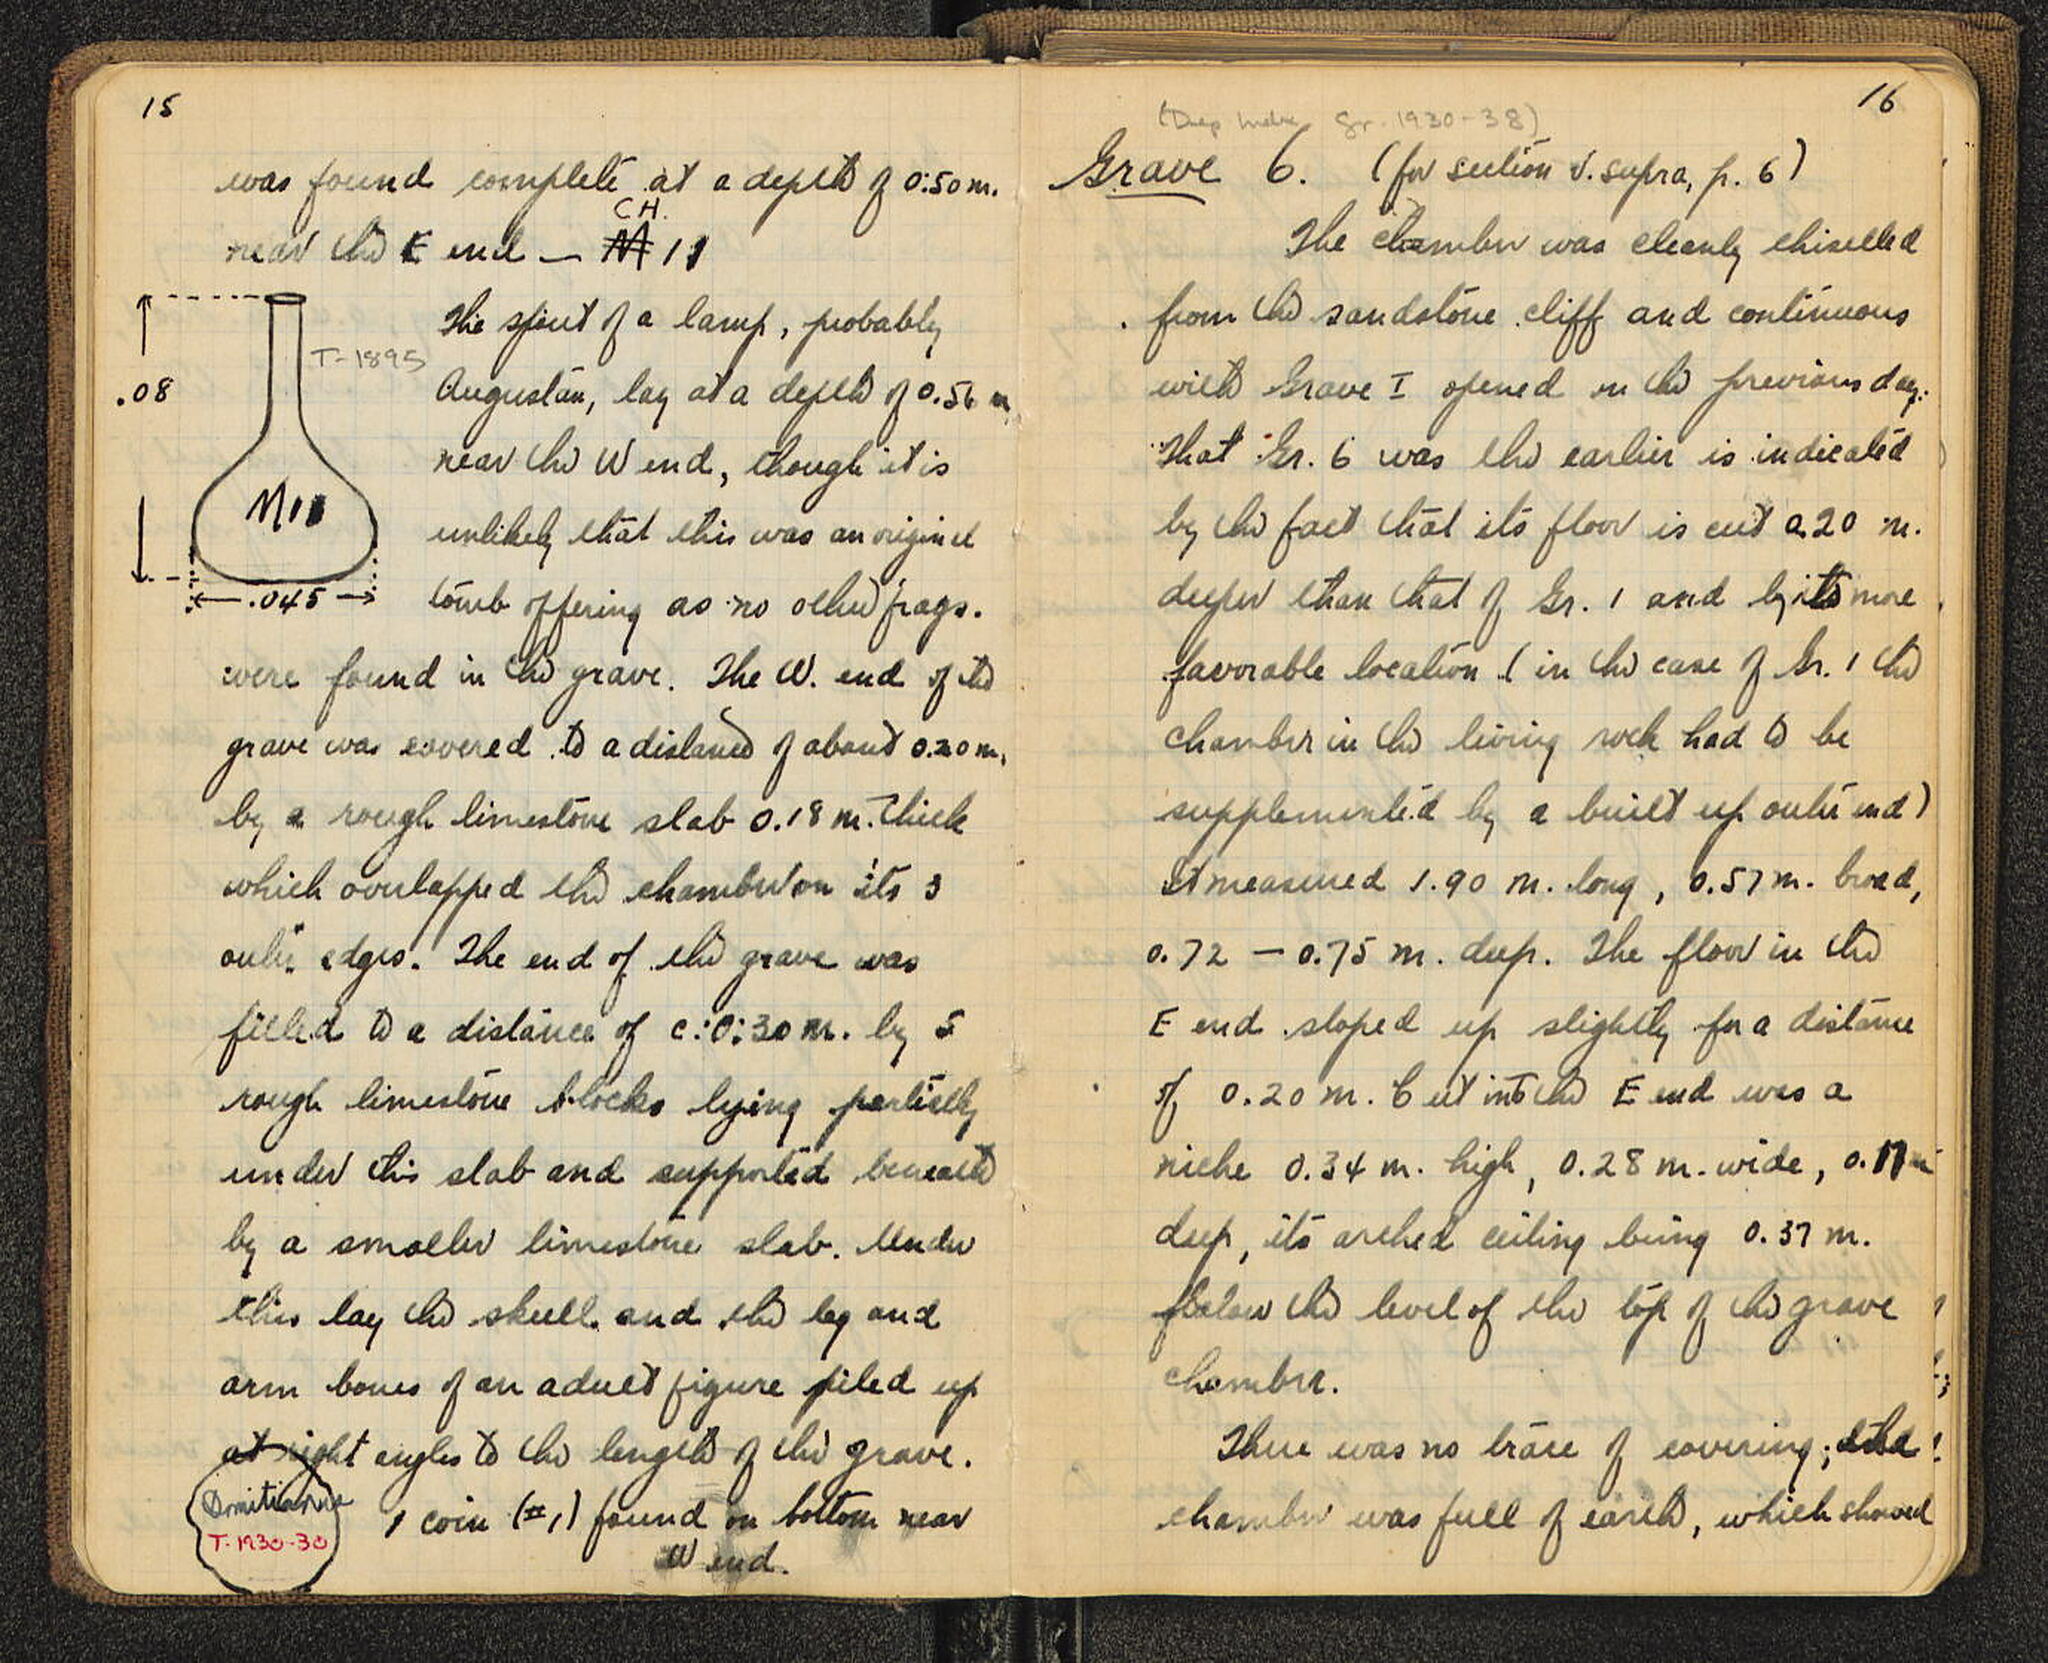 15
was found complete at a depth of 0.50 m.
CH.
near the E end — M 11
T-1895
.08
M11
.045
The spout of a lamp, probably
Augustan, lay at a depth of 0.56 m
near the W end, though it is
unlikely that this was an original
tomb offering as no other frags.
were found in the grave. The W. end of the
grave was covered to a distance of about 0.20 m.
by a rough limestone slab 0.18 m. thick
which overlapped the chamber on its 3
outer edges. The end of the grave was
filled to a distance of c. 0.30 m. by 5
rough limestone blocks lying partially
under this slab and supported beneath
by a smaller limestone slab. Under
this lay the skull and the leg and
arm bones of an adult figure piled up
at right angles to the length of the grave.
Domitianus
T-1930-30
1 coin (#1) found on bottom near
W end.
16
(Deep Gr. 1930-38)
Grave 6. (for section v. supra, p. 6)
The chamber was cleanly chiselled
from the sandstone cliff and continuous
with Grave I opened on the previous day.
That Gr. 6 was the earlier is indicated
by the fact that its floor is cut 0.20 m.
deeper than that of Gr. 1 and by its more
favorable location (in the case of Gr. 1 the
chamber in the living rock had to be
supplemented by a built up outer end)
It measured 1.90 m. long, 0.57 m. broad,
0.72 — 0.75 m. deep. The floor in the
E end sloped up slightly for a distance
of 0.20 m. Cut into the E end was a
niche 0.34 m. high, 0.28 m. wide, 0.17 m
deep, its arched ceiling being 0.37 m.
below the level of the top of the grave
chamber.
There was no trace of covering; the
chamber was full of earth, which showed